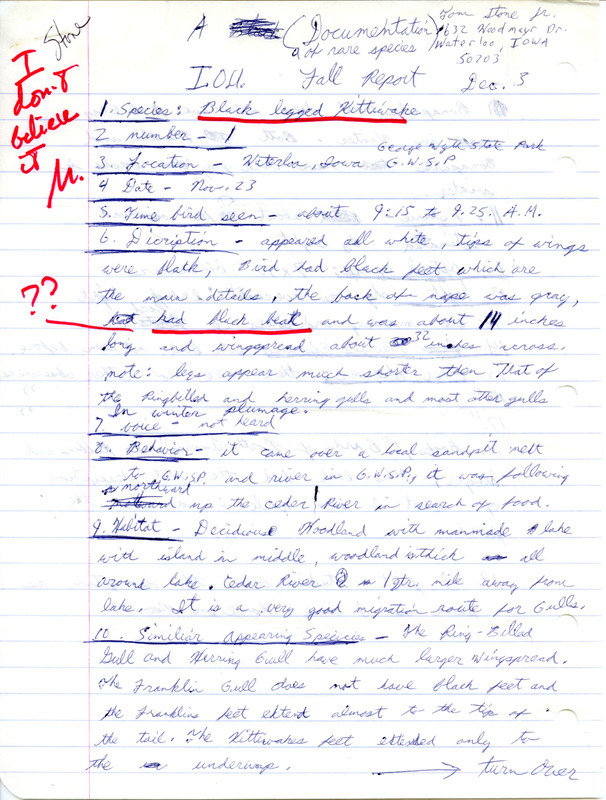 Stone
I
don't
believe
it
M.
A (Documentation
of rare species)
Tom Stone Jr.
632 Woodmayr Dr.
Waterloo, IOWA
50703
I.O.U. Fall Report Dec. 3
1. Species: Black legged Kittiwake
2. number - 1
George Wyth State Park
3. Location - Waterloo, Iowa G.W.S.P
4 Date - Nov. 23
5. Time bird seen - about 9:15 to 9:25 A.M.
6. Dicription - appeared all white, tips of wings
were black, Bird had black feet which are
the main details, the back of nape was gray,
??
had black beak and was about 14 inches
long and wingspread about 32 inches across.
note: legs appear much shorter then that of
the Ringbilled and herring gulls and most other gulls
In winter plumage.
7. voice - not heard
8. Behavior - it came over a local sandpit next
to G.W.S.P. and river in G.W.S.P., it was following
northward
up the ceder River in search of food.
9. Habitat - Decidious Woodland with manmade lake
with island in middle, woodland is thick all
around lake. Cedar River 1 qtr. mile away from
lake. It is a very good migration route for Gulls.
10. Similiar Appearing Speccies - The Ring-Billed
Gull and Herring Gull have much larger Wingspread.
The Franklin Gull does not have black feet and
the Franklins feet extend almost to the tip of
the tail. The Kittiwakes feet extended only to
the underrump. → turn Over